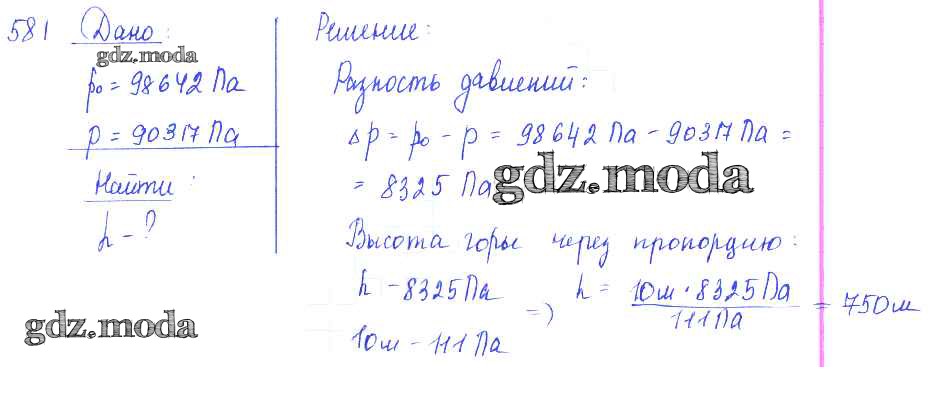 581 Дано:
gdz.moda
p₀ = 98642 Па
p = 90317 Па
Найти:
h - ?
gdz.moda
Решение:
Разность давлений:
Δp = p₀ - p = 98642 Па - 90317 Па =
= 8325 Па
gdz.moda
Высота горы через пропорцию:
h - 8325 Па
10м - 111 Па
=> h = 10м · 8325 Па / 111 Па = 750м